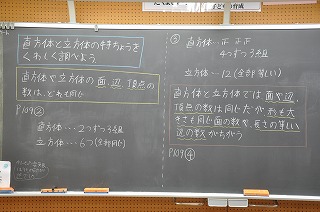 直方体と立方体の特ちょうを
くわしく調べよう。
直方体や立方体の面、辺、頂点の
数は、どれも同じ
P109②
直方体…2つずつ3組
立方体…6つ(全部同じ)
③ 直方体…正 正 正
4つずつ3組
立方体…12(全部等しい)
直方体と立方体では面や辺、
頂点の数は同じだが形も大
きさも同じ面の数や、長さの等しい
辺の数がちがう
P109④